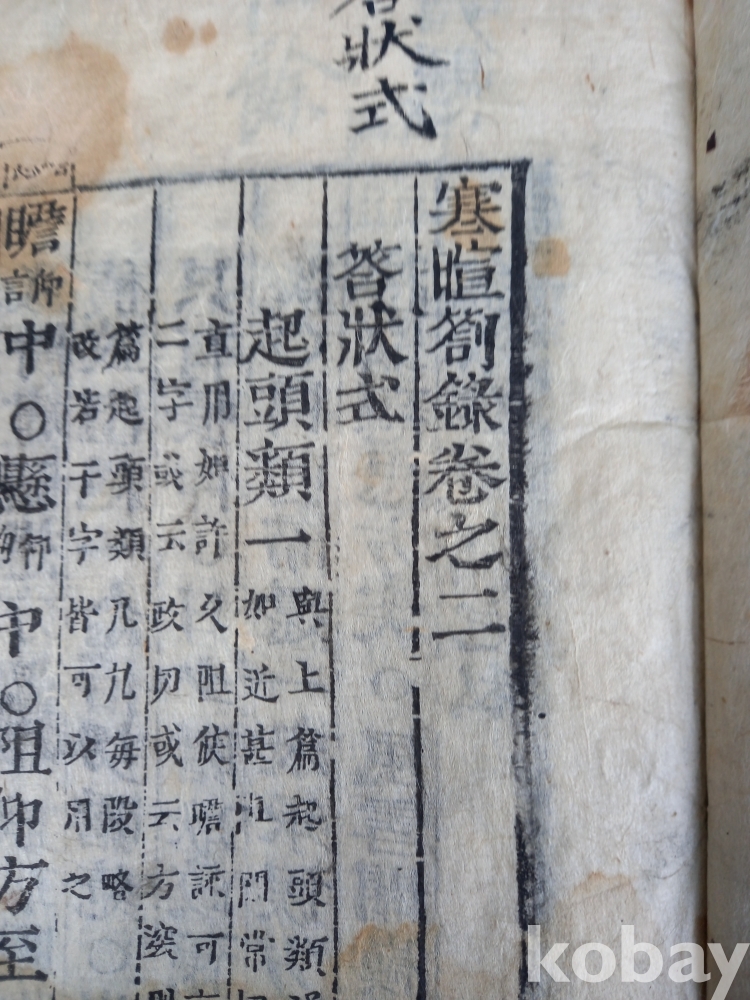 答狀式
寒暄箚錄卷之二
答狀式
起頭類一
與上篇起頭類
如近甚阻問常
直用如許久阻使瞻誦可
二字或云政切或云方深
篇起頭類凡九每段略
改若干字皆可以用之
瞻仰詠中○懸仰中○阻仰方至
kobay